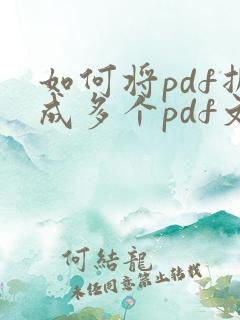 如何将pdf
成多个pdf
何結龍
未经同意禁止转载